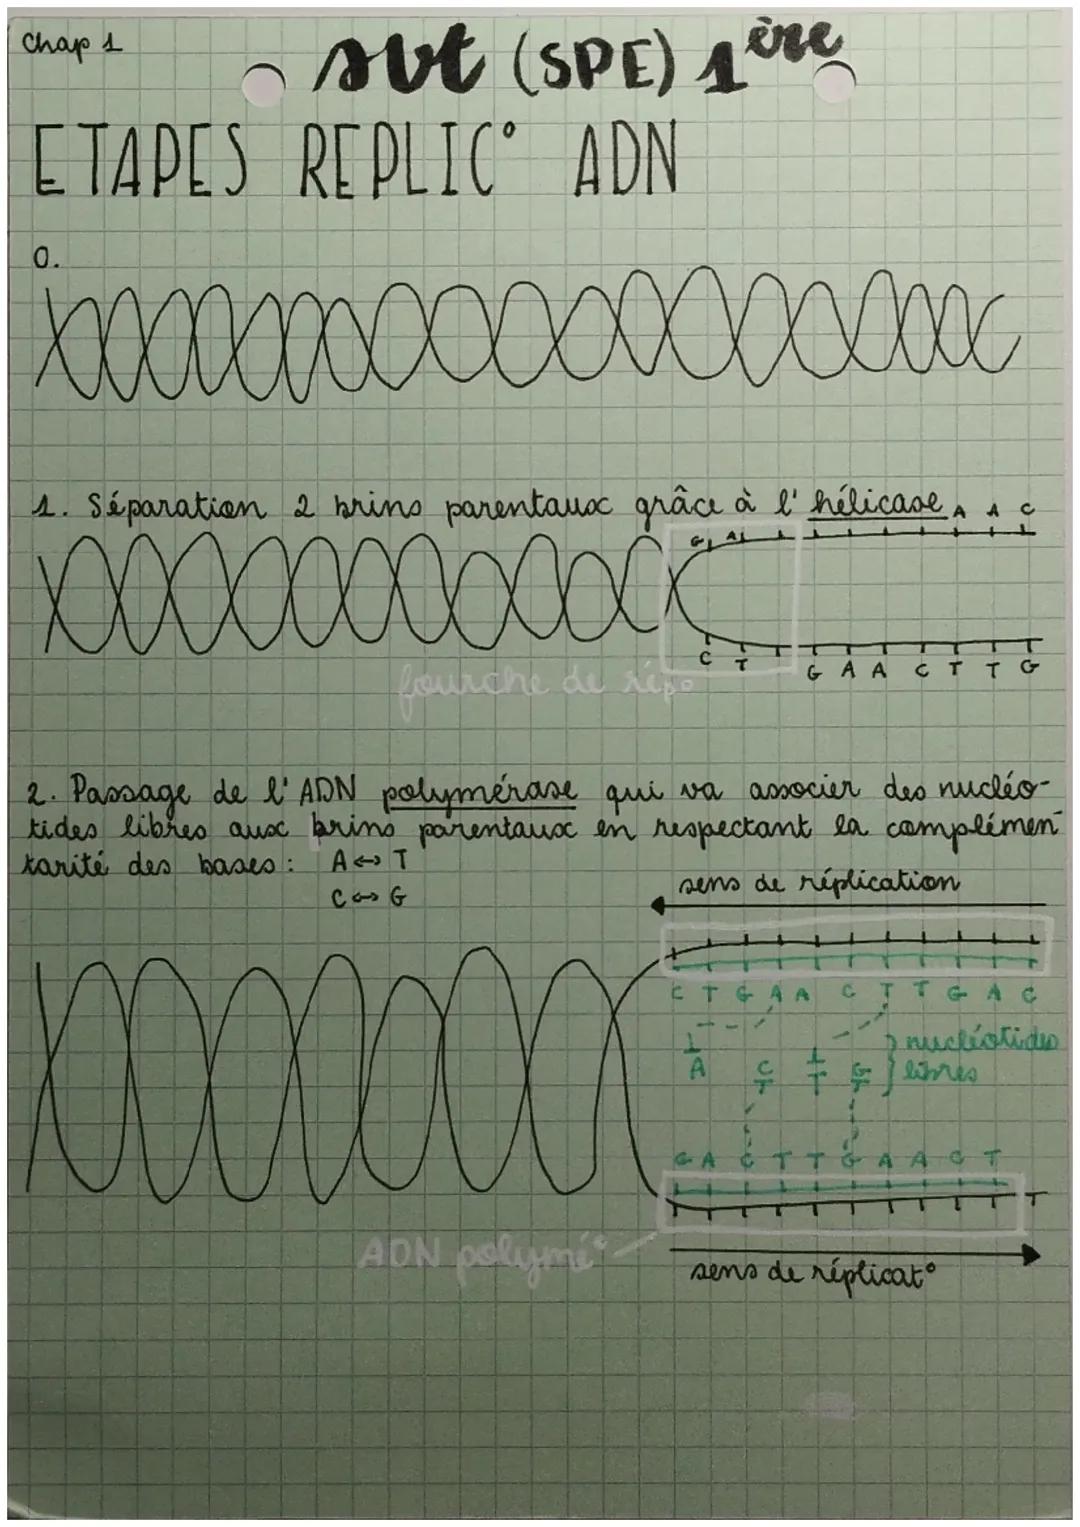 Chap 1
svt (SPE) 1ère
ETAPES REPLIC° ADN
0.
1. Séparation 2 brins parentaux grâce à l'hélicase
A A C
G A
C T G A A C T T G
fourche de répo
2. Passage de l'ADN polymérase qui va associer des nucléo-
tides libres aux brins parentaux en respectant la complémen-
tarité des bases : A ↔ T
C ↔ G
sens de réplication
C T G A A C T T G A C
nucléotides
A C T G libres
T T
G A C T T G A A C T
ADN polymé°
sens de réplicat°